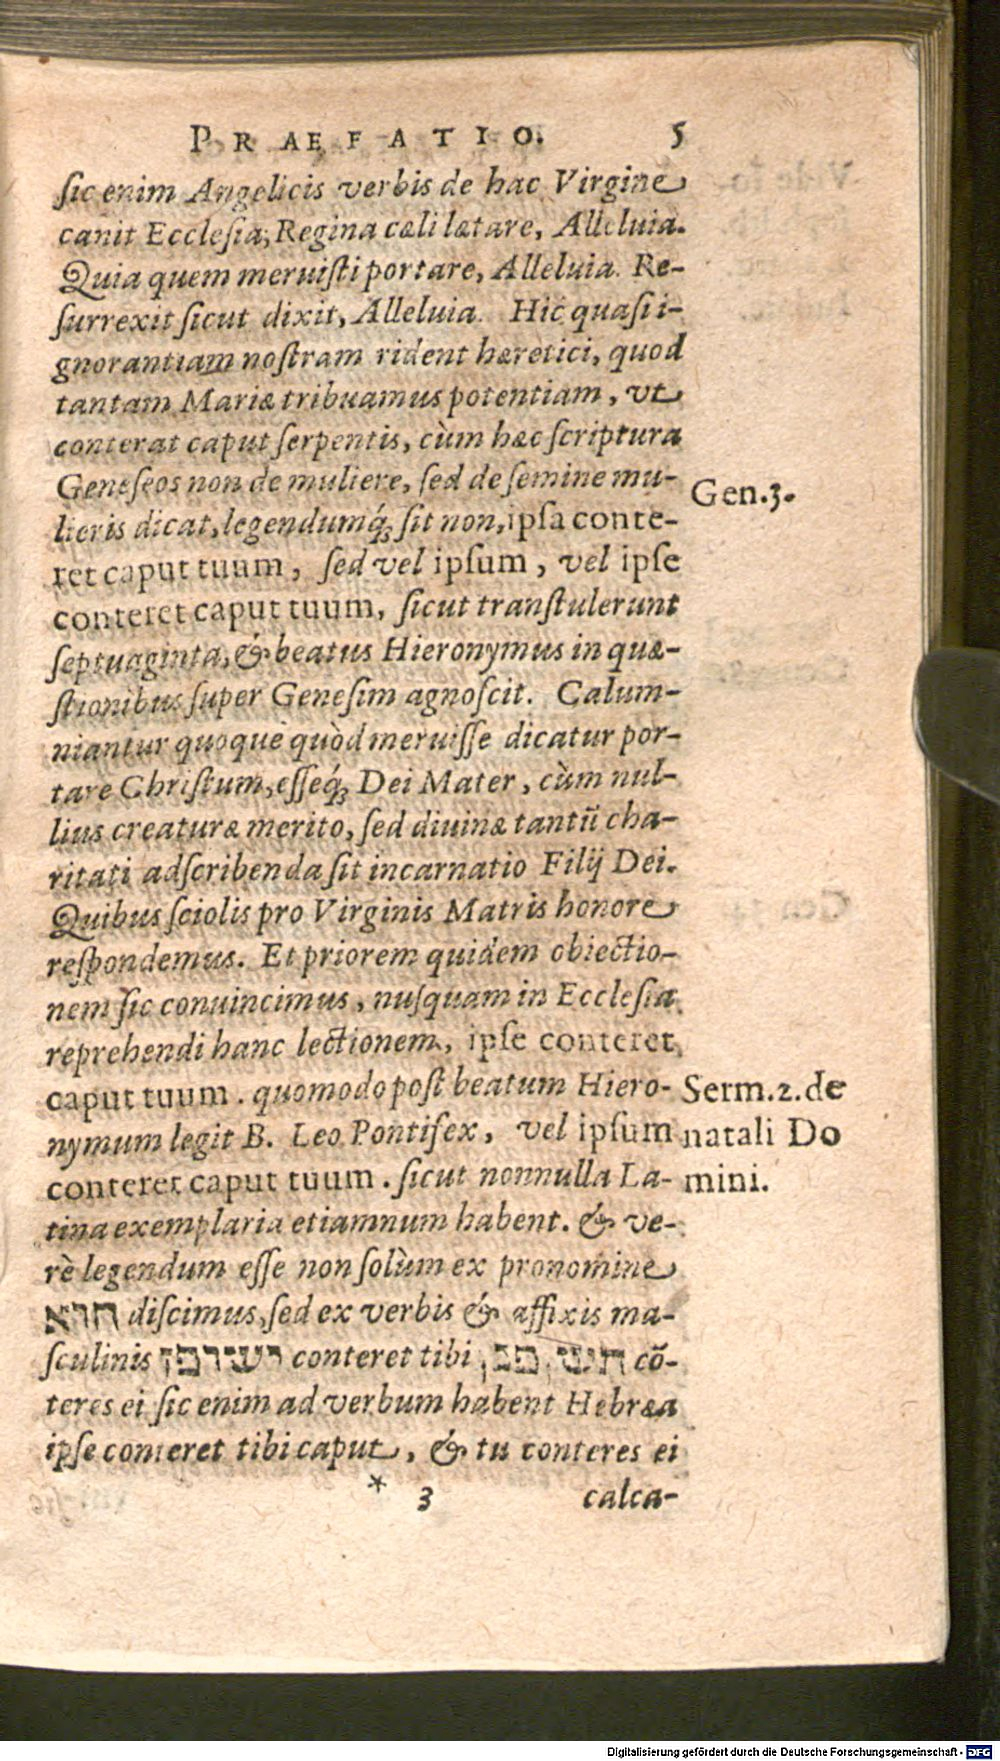 PRAEFATIO. 5
sic enim Angelicis verbis de hac Virgine
canit Ecclesia; Regina cæli lætare, Alleluia.
Quia quem meruisti portare, Alleluia. Re-
surrexit sicut dixit, Alleluia. Hic quasi i-
gnorantiam nostram rident hæretici, quod
tantam Mariæ tribuamus potentiam, vt
conterat caput serpentis, cùm hæc scriptura
Geneseos non de muliere, sed de semine mu-
lieris dicat, legendumq́; sit non, ipsa conte-
ret caput tuum, sed vel ipsum, vel ipse
conteret caput tuum, sicut transtulerunt
septuaginta, & beatus Hieronymus in quæ-
stionibus super Genesim agnoscit. Calum-
niantur quoque quòd meruisse dicatur por-
tare Christum, esseq́; Dei Mater, cùm nul-
lius creaturæ merito, sed diuinæ tantũ cha-
ritati adscribenda sit incarnatio Filij Dei.
Quibus sciolis pro Virginis Matris honore
respondemus. Et priorem quidem obiectio-
nem sic conuincimus, nusquam in Ecclesia
reprehendi hanc lectionem, ipse conteret
caput tuum. quomodo post beatum Hiero-
nymum legit B. Leo Pontifex, vel ipsum
conteret caput tuum. sicut nonnulla La-
tina exemplaria etiamnum habent. & ve-
rè legendum esse non solùm ex pronomine
הוא discimus, sed ex verbis & affixis ma-
sculinis ישופך conteret tibi, cõ-
teres ei sic enim ad verbum habent Hebræa
ipse conteret tibi caput, & tu conteres ei
* 3 calca-
Gen.3.
Serm.2.de
natali Do
mini.
Digitalisierung gefördert durch die Deutsche Forschungsgemeinschaft - DFG